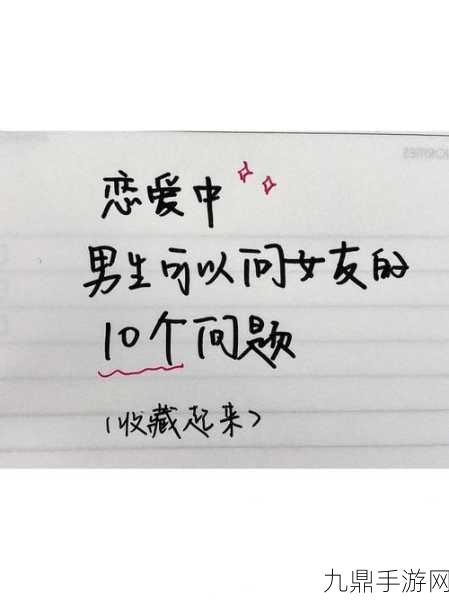 恋爱中
男生可以问女友的
10个问题
(收藏起来)
九鼎手游网